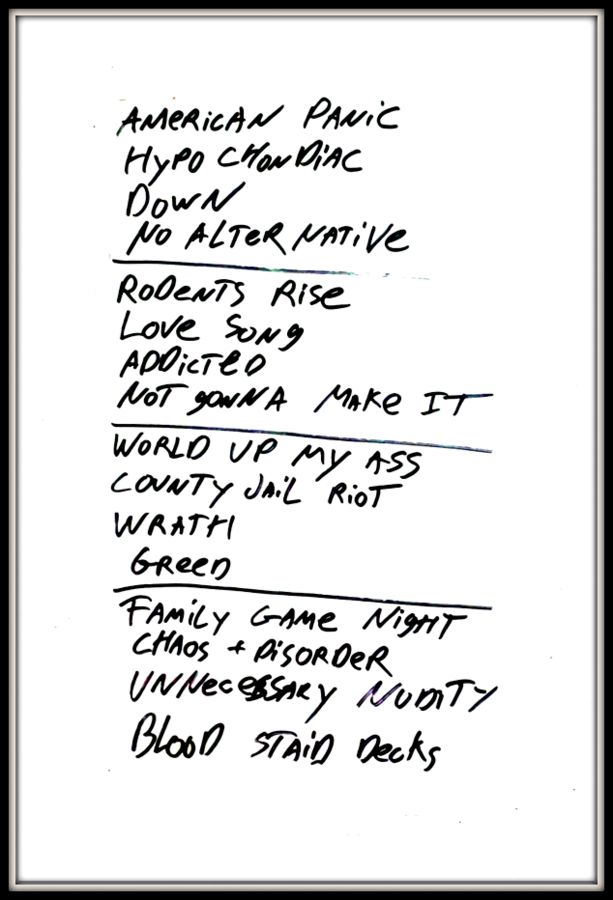 AMERiCAN PANiC
HyPO CHONDiAC
DOWN
NO ALTERNATiVe
RODENTS RiSe
LOVe SONg
ADDiCTeD
NOT gONNA MAKe IT
WORLD UP MY ASS
COUNTY JAiL RioT
WRATH
GReeD
FAMiLY GAMe NigHT
CHAOS + DiSORDeR
UNNeceSSARy NUDiTY
BlooD STAiD Decks